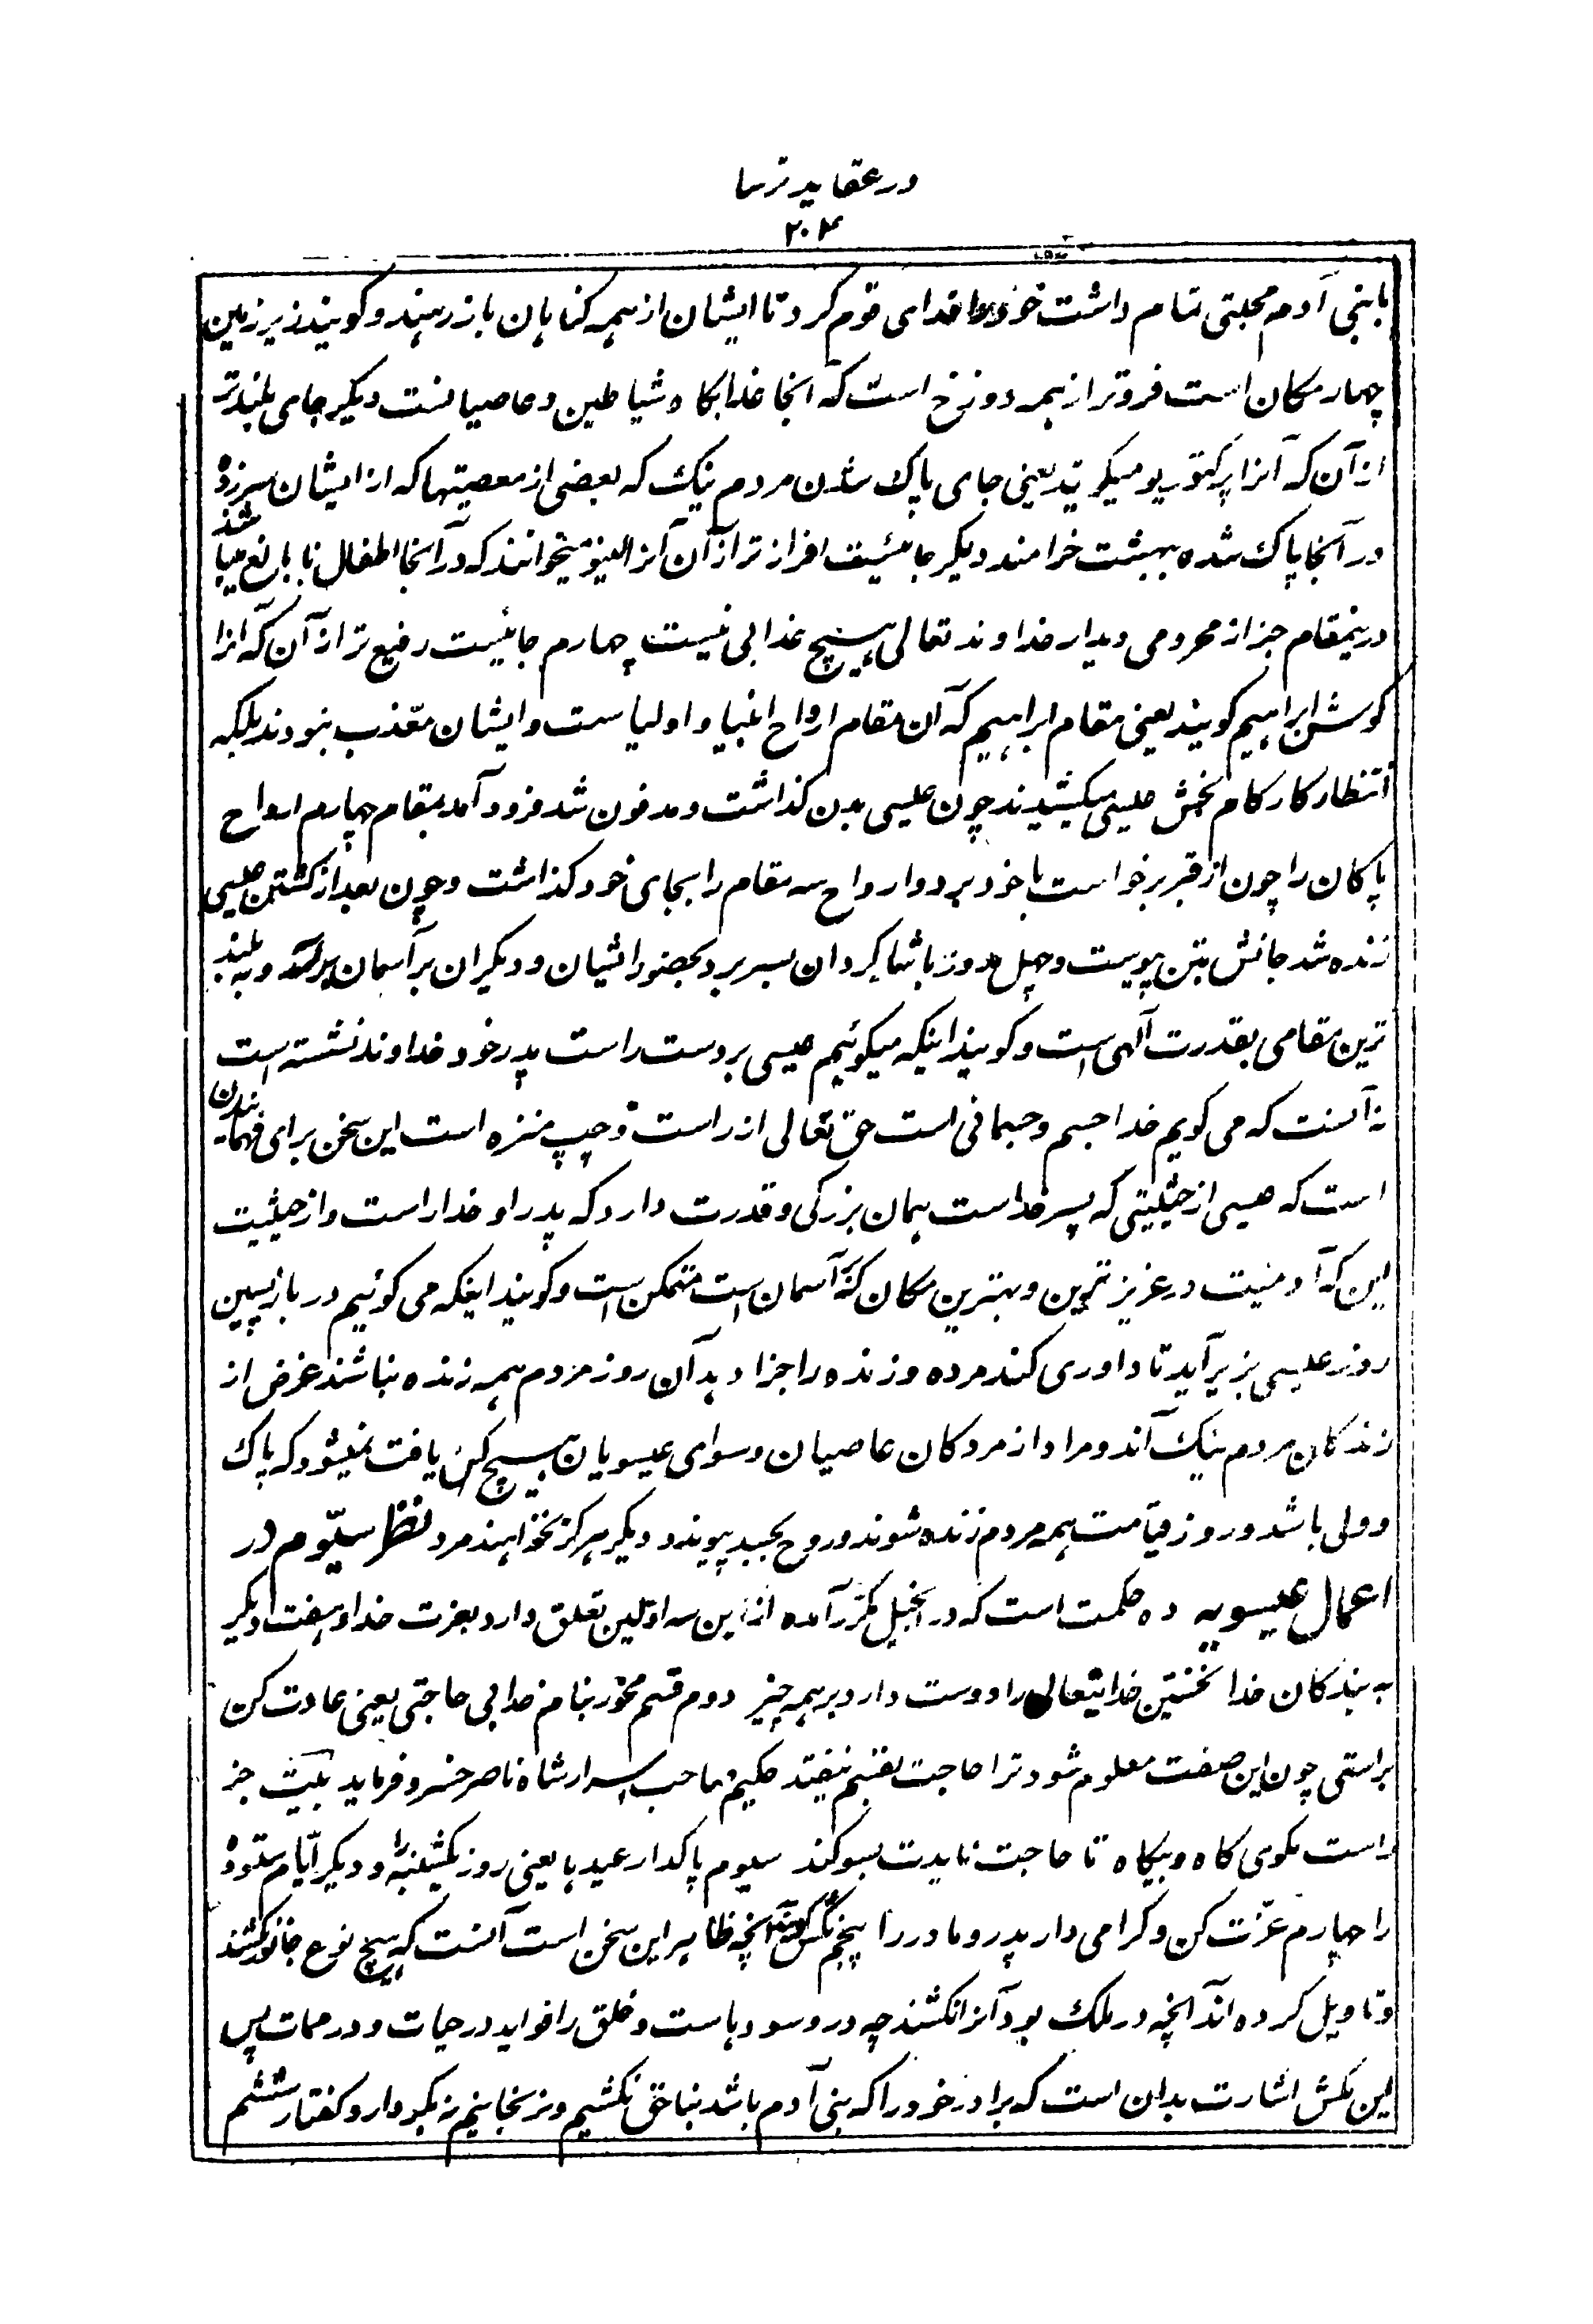 در عقاید ترسا
۲۰۴
با بنی آدم محبتی تمام داشت خود را فدای قوم کرد تا ایشان از همه کناهان باز رهند و کویند زیر زمین
چهار مکان است فروتر از همه دوزخ است که آنجا عذابکاه شیاطین و عاصیانست دیکر جای بلندتر
از آن که آنرا پرکتوریو میکویند یعنی جای پاک شدن مردم نیک که بعضی از معصیتها که از ایشان سر زده
در آنجا پاک شده ببهشت خرامند دیکر جائیست افراز تر از آن آنرا لینو میخوانند که در آنجا اطفال نابالغ میباشند
درینمقام جز از محرومی دیدار خداوند تعالی هیچ عذابی نیست چهارم جائیست رفیع تر از آن که آنرا
کوشن ابراهیم کویند یعنی مقام ابراهیم که آن مقام ارواح انبیا و اولیاست و ایشان معّذب نبودند بلکه
انتظار کار کام بخش عیسی میکشیدند چون عیسی بدن کذاشت و مدفون شد فرود آمد بمقام چهارم ارواح
پاکان را چون از قبر برخواست با خود برد و ارواح سه مقام را بجای خود کذاشت و چون بعد از کشتن عیسی
زنده شد جانش بتن پیوست و چهل روز با شاکردان بسر برد بحضور ایشان و دیکران بر آسمان برآمد و به بلند
ترین مقامی بقدرت آلهی است و کویند اینکه میکوئیم عیسی بر دست راست پدر خود خداوند نشسته است
نه آنست که می کویم خدا جسم و جسمانی است حق تعالی از راست و چپ منزه است این سخن برای فهمانیدن
است که عیسی از حیثیتی که پسر خداست همان بزرکی و قدرت دارد که پدر او خدا راست و از حیثیت
این که آدمیت در عزیز ترین و بهترین مکان که آسمان است متمکن است و کویند اینکه می کوئیم در بازپسین
روز عیسی بزیر آید تا داوری کند مرده و زنده را جزا دهد آن روز مردم همه زنده نباشند غرض از
زندکان مردم نیک آند و مراد از مردکان عاصیان و سوای عیسویان هیچ کس یافت نمیشود که پاک
و ولی باشد و روز قیامت همه مردم زنده شوند و روح بجسد پیوندد و دیکر هرکز نخواهند مرد نظر سیّوم در
اعمال عیسویه ده حکمت است که در انجیل مکرّر آمده از این سه اوّلین تعلق دارد بعزت خدا و هفت دیکر
به بندکان خدا نخستین خدایتعالی را دوست دارد بر همه چیز دوم قسم مخور بنام خدا بی حاجتی یعنی عادت کن
براستی چون این صفت معلوم شود ترا حاجت بقسم نیفتد حکیم صاحب اسرار شاه ناصر خسرو فرماید بیت جز
راست مکوی کاه و بیکاه تا حاجت نایدت بسوکند سیوم پاکدار عیدها یعنی روز یکشنبه را و دیکر ایّام ستوده
را چهارم عزّت کن و کرامی دار پدر و مادر را پنجم مکش کنند آنچه ظاهر این سخن است آنست که هیچ نوع جانور نکشند
و تاویل کرده اند آنچه در ملک بود آنرا نکشند چه درو سودهاست و خلق را فواید در حیات و در ممات پس
این مکش اشارت بدان است که برادر خود را که بنی آدم باشد بناحق نکشیم و نرنجانیم نه بکردار و کفتار ششم